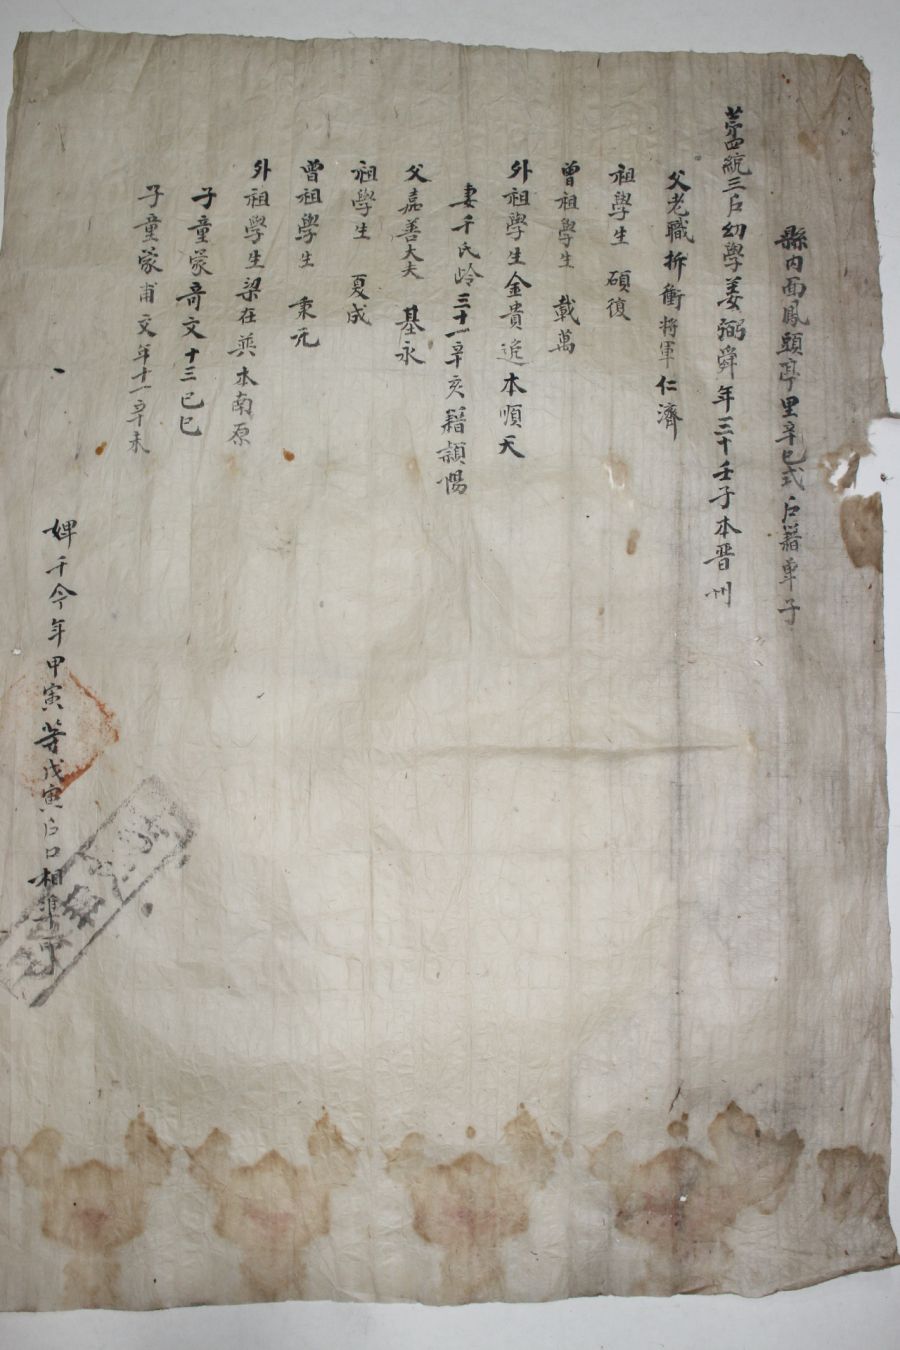 縣內面鳳頭亭里辛巳式戶籍單子
苐四統三戶幼學姜弼舜年三十壬子本晋州
父老職折衝將軍仁濟
祖學生 碩復
曾祖學生 載萬
外祖學生金貴 本順天
妻千氏岭三十一辛亥籍潁陽
父嘉善大夫 基永
祖學生 夏成
曾祖學生 秉元
外祖學生梁在 本南原
子童蒙奇文十三己巳
子童蒙甫文年十一辛未
婢千今年甲寅等戊寅戶口相凖